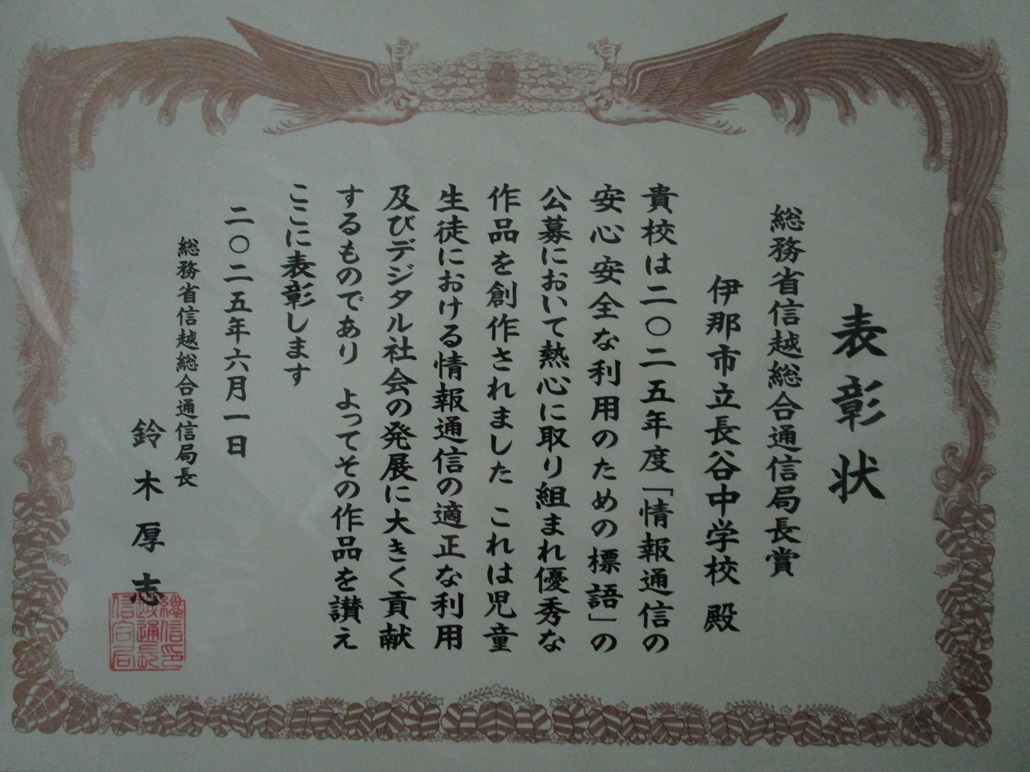 表彰状
総務省信越総合通信局長賞
伊那市立長谷中学校 殿
貴校は二〇二五年度「情報通信の
安心安全な利用のための標語」の
公募において熱心に取り組まれ優秀な
作品を創作されました これは児童
生徒における情報通信の適正な利用
及びデジタル社会の発展に大きく貢献
するものであり よってその作品を讃え
ここに表彰します
二〇二五年六月一日
総務省信越総合通信局長
鈴木厚志